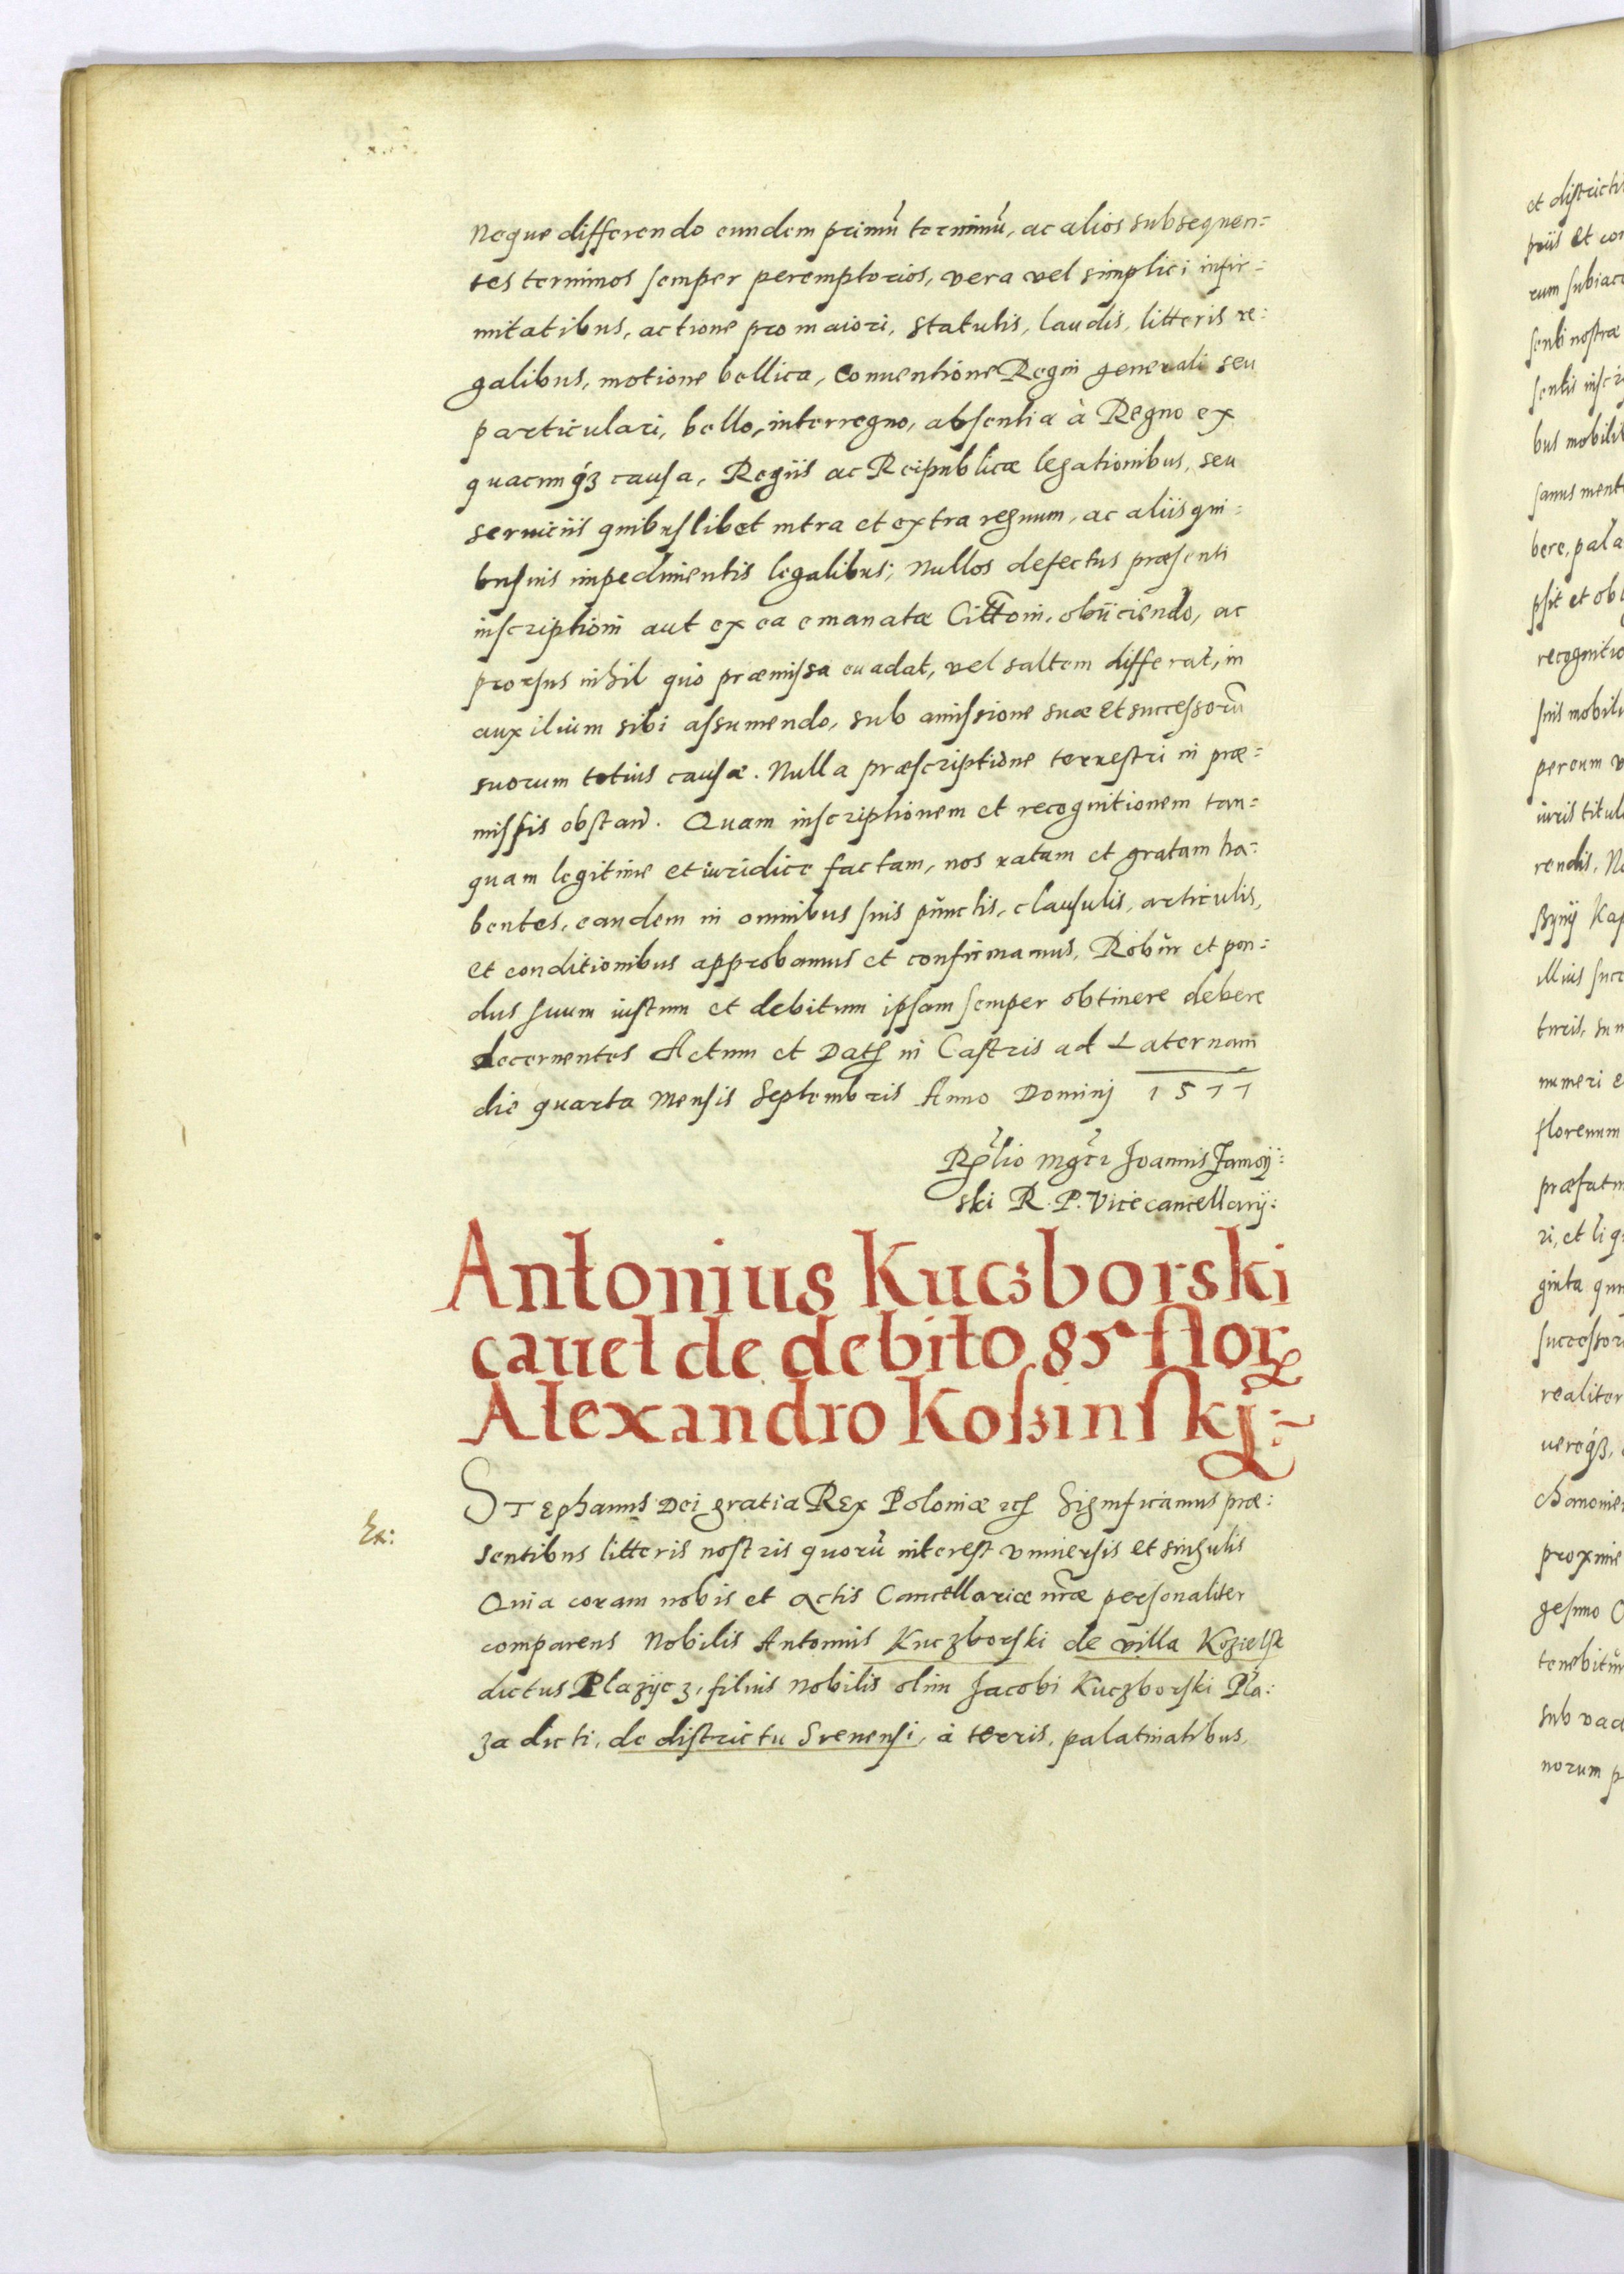 Neque differendo eundem primũ terminũ, ac alios subsequen:
tes terminos semper peremptorios, vera vel simplici infir:
mitatibus, actione pro maiori, statutis, laudis, litteris re:
galibus, motione bellica, Conuentione Regni generali seu
particulari, bello, interregno, absentia à Regno ex
quacunqȝ causa, Regiis ac Reipublicæ legationibus, seu
seruiciis quibuslibet intra et extra regnum, ac aliis qui:
busuis impedimentis legalibus; Nullos defectus præsenti
inscriptioni aut ex ea emanatæ Citt̃oni, obiiciendo, ac
prorsus nihil quo præmissa euadat, vel saltem differat, in
auxilium sibi assumendo, sub amissione suæ et successorũ
suorum totius causæ. Nulla præscriptione terrestri in præ:
missis obstañ. Quam inscriptionem et recognitionem tan:
quam legitime et iuridice factam, nos ratam et gratam ha:
bentes, eandem in omnibus suis punctis, clausulis, articulis,
et conditionibus approbamus et confirmamus, Robur et pon:
dus suum iustum et debitum ipsam semper obtinere debere
decernentes Actum et Datꝭ in Castris ad Laternam
die quarta Mensis Septembris Anno Dominj 1577
Rp̃lio mgc̃i Joannis Zamoy:
ski R. P. Vicecancellarij:
Antonius Kuczborski
cauet de debito 85 flor
Alexandro Koßinskj:~
Ex:
STephanus Dei gratia REx Poloniæ ꝛcꝭ Significamus præ:
sentibus litteris nostris quorũ interest vniuersis et singulis
Quia coram nobis et Actis Cancellariæ nr̃æ personaliter
comparens Nobilis Antonius Kuczborski de villa Kozielsk
dictus Plazycz, filius Nobilis olim Jacobi Kuczborski Pla:
za dicti, de districtu Srenensi, à terris, palatinatibus,
et district
priis et co
rum subiac
senti nostræ
sentis inscr
bus mobili
sanus ment
bere, pala
psit et ob
recognitio
suis mobil
per eum v
iuris titul
rendis, N
illius succ
turis, su
numeri e
florenum
præfat
ri, et li
ginta qu
successor
realiter
proxime
gesimo
tenebitur
sub vad
norum p